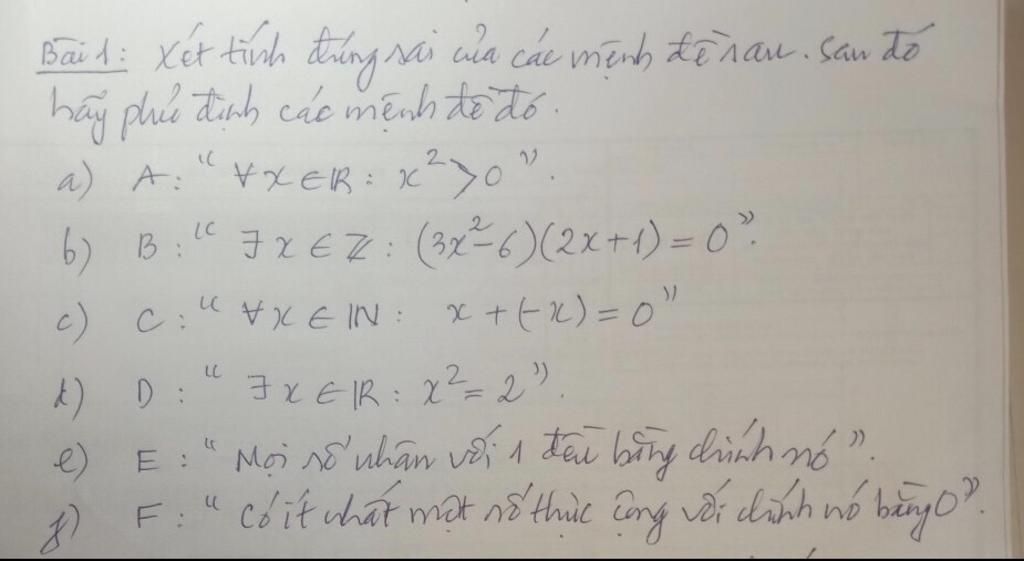 Bài 1: Xét tính đúng sai của các mệnh đề sau. Sau đó
hãy phủ định các mệnh đề đó.
a) A: "∀x ∈ ℝ: x² > 0".
b) B: "∃x ∈ ℤ: (3x² - 6)(2x + 1) = 0".
c) C: "∀x ∈ ℕ: x + (-x) = 0"
d) D: "∃x ∈ ℝ: x² = 2".
e) E: "Mọi số nhân với 1 đều bằng chính nó".
f) F: "Có ít nhất một số thực cộng với chính nó bằng 0".